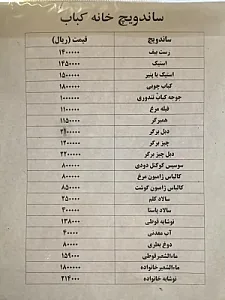 ساندویچ خانه کباب
ساندویچ قیمت (ریال)
رست بیف ۱۴۰۰۰۰۰
استیک ۱۳۵۰۰۰۰
استیک با پنیر ۱۵۰۰۰۰۰
کباب چوبی ۱۸۰۰۰۰۰
جوجه کباب تندوری ۱۰۰۰۰۰۰
فیله مرغ ۱۱۰۰۰۰۰
همبرگر ۱۱۵۰۰۰۰
دبل برگر
چیز برگر ۱۲۰۰۰۰۰
دبل چیز برگر ۲۲۰۰۰۰۰
سوسیس کوکتل دودی ۸۰۰۰۰۰
کالباس ژامبون مرغ ۸۰۰۰۰۰
کالباس ژامبون گوشت ۸۵۰۰۰۰
سالاد کلم ۲۵۰۰۰۰
سالاد پاستا ۳۰۰۰۰۰
نوشابه قوطی ۱۳۸۰۰۰
آب معدنی ۴۰۰۰۰
دوغ بطری ۸۰۰۰۰
ماءالشعیر قوطی ۱۵۹۰۰۰
ماءالشعیر خانواده ۱۸۰۰۰۰۰
نوشابه خانواده ۲۱۴۰۰۰